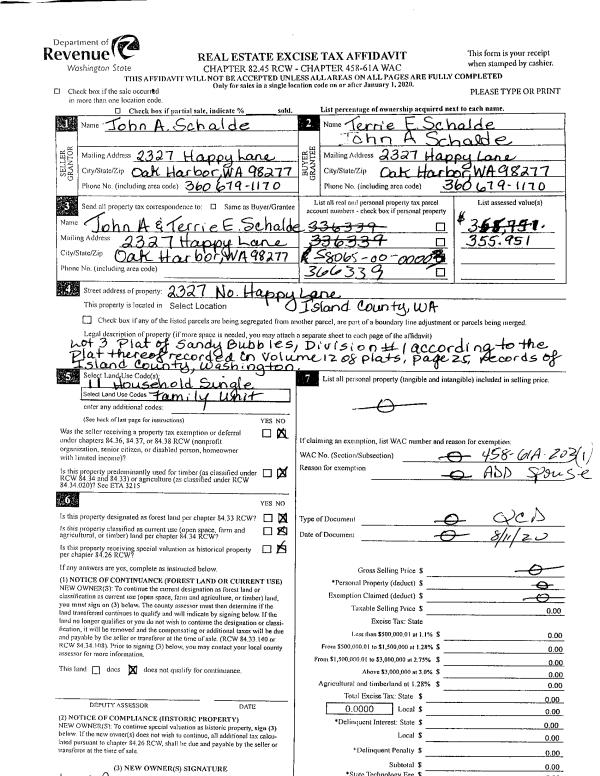 Department of
Revenue
Washington State
REAL ESTATE EXCISE TAX AFFIDAVIT
CHAPTER 82.45 RCW - CHAPTER 458-61A WAC
THIS AFFIDAVIT WILL NOT BE ACCEPTED UNLESS ALL AREAS ON ALL PAGES ARE FULLY COMPLETED
Only for sales in a single location code on or after January 1, 2020.
This form is your receipt
when stamped by cashier.
PLEASE TYPE OR PRINT
Check box if the sale occurred
in more than one location code.
Check box if partial sale, indicate % sold.
List percentage of ownership acquired next to each name.
1 Name John A. Schalde
SELLER GRANTOR
Mailing Address 2327 Happy Lane
City/State/Zip Oak Harbor, WA 98277
Phone No. (including area code) 360 679-1170
2 Name Terrie E. Schalde
John A Schalde
BUYER GRANTEE
Mailing Address 2327 Happy Lane
City/State/Zip Oak Harbor, WA 98277
Phone No. (including area code) 360 679-1170
3 Send all property tax correspondence to: Same as Buyer/Grantee
Name John A & Terrie E. Schalde
Mailing Address 2327 Happy Lane
City/State/Zip Oak Harbor, WA 98277
Phone No. (including area code)
List all real and personal property tax parcel
account numbers - check box if personal property
336339
336339
S8065-00-00003
366339
List assessed value(s)
$
355.951
4 Street address of property: 2327 No. Happy Lane
This property is located in Select Location Island County, WA
Check box if any of the listed parcels are being segregated from another parcel, are part of a boundary line adjustment or parcels being merged.
Legal description of property (if more space is needed, you may attach a separate sheet to each page of the affidavit)
Lot 3 Plat of Sandy Bubbles, Division #1 according to the
Plat thereof recorded in Volume 12 of plats, page 25, records of
Island County, Washington.
5 Select Land Use Code(s):
11 Household Single
Select Land Use Codes Family Unit
enter any additional codes:
(See back of last page for instructions)
YES NO
Was the seller receiving a property tax exemption or deferral
under chapters 84.36, 84.37, or 84.38 RCW (nonprofit
organization, senior citizen, or disabled person, homeowner
with limited income)?
Is this property predominantly used for timber (as classified under
RCW 84.34 and 84.33) or agriculture (as classified under RCW
84.34.020)? See ETA 3215
6 YES NO
Is this property designated as forest land per chapter 84.33 RCW?
Is this property classified as current use (open space, farm and
agricultural, or timber) land per chapter 84.34 RCW?
Is this property receiving special valuation as historical property
per chapter 84.26 RCW?
If any answers are yes, complete as instructed below.
(1) NOTICE OF CONTINUANCE (FOREST LAND OR CURRENT USE)
NEW OWNER(S): To continue the current designation as forest land or
classification as current use (open space, farm and agriculture, or timber) land,
you must sign on (3) below. The county assessor must then determine if the
land transferred continues to qualify and will indicate by signing below. If the
land no longer qualifies or you do not wish to continue the designation or classi-
fication, it will be removed and the compensating or additional taxes will be due
and payable by the seller or transferor at the time of sale. (RCW 84.33.140 or
RCW 84.34.108). Prior to signing (3) below, you may contact your local county
assessor for more information.
This land does does not qualify for continuance.
DEPUTY ASSESSOR DATE
(2) NOTICE OF COMPLIANCE (HISTORIC PROPERTY)
NEW OWNER(S): To continue special valuation as historic property, sign (3)
below. If the new owner(s) does not wish to continue, all additional tax calcu-
lated pursuant to chapter 84.26 RCW, shall be due and payable by the seller or
transferor at the time of sale.
(3) NEW OWNER(S) SIGNATURE
7 List all personal property (tangible and intangible) included in selling price.
If claiming an exemption, list WAC number and reason for exemption:
WAC No. (Section/Subsection) 458-61A-203(1)
Reason for exemption ADD Spouse
Type of Document QCD
Date of Document 8/11/20
Gross Selling Price $
*Personal Property (deduct) $
Exemption Claimed (deduct) $
Taxable Selling Price $ 0.00
Excise Tax: State
Less than $500,000.01 at 1.1% $ 0.00
From $500,000.01 to $1,500,000 at 1.28% $ 0.00
From $1,500,000.01 to $3,000,000 at 2.75% $ 0.00
Above $3,000,000 at 3.0% $ 0.00
Agricultural and timberland at 1.28% $ 0.00
Total Excise Tax: State $ 0.00
0.0000 Local $ 0.00
*Delinquent Interest: State $ 0.00
Local $ 0.00
*Delinquent Penalty $ 0.00
Subtotal $ 0.00
*State Technology Fee $